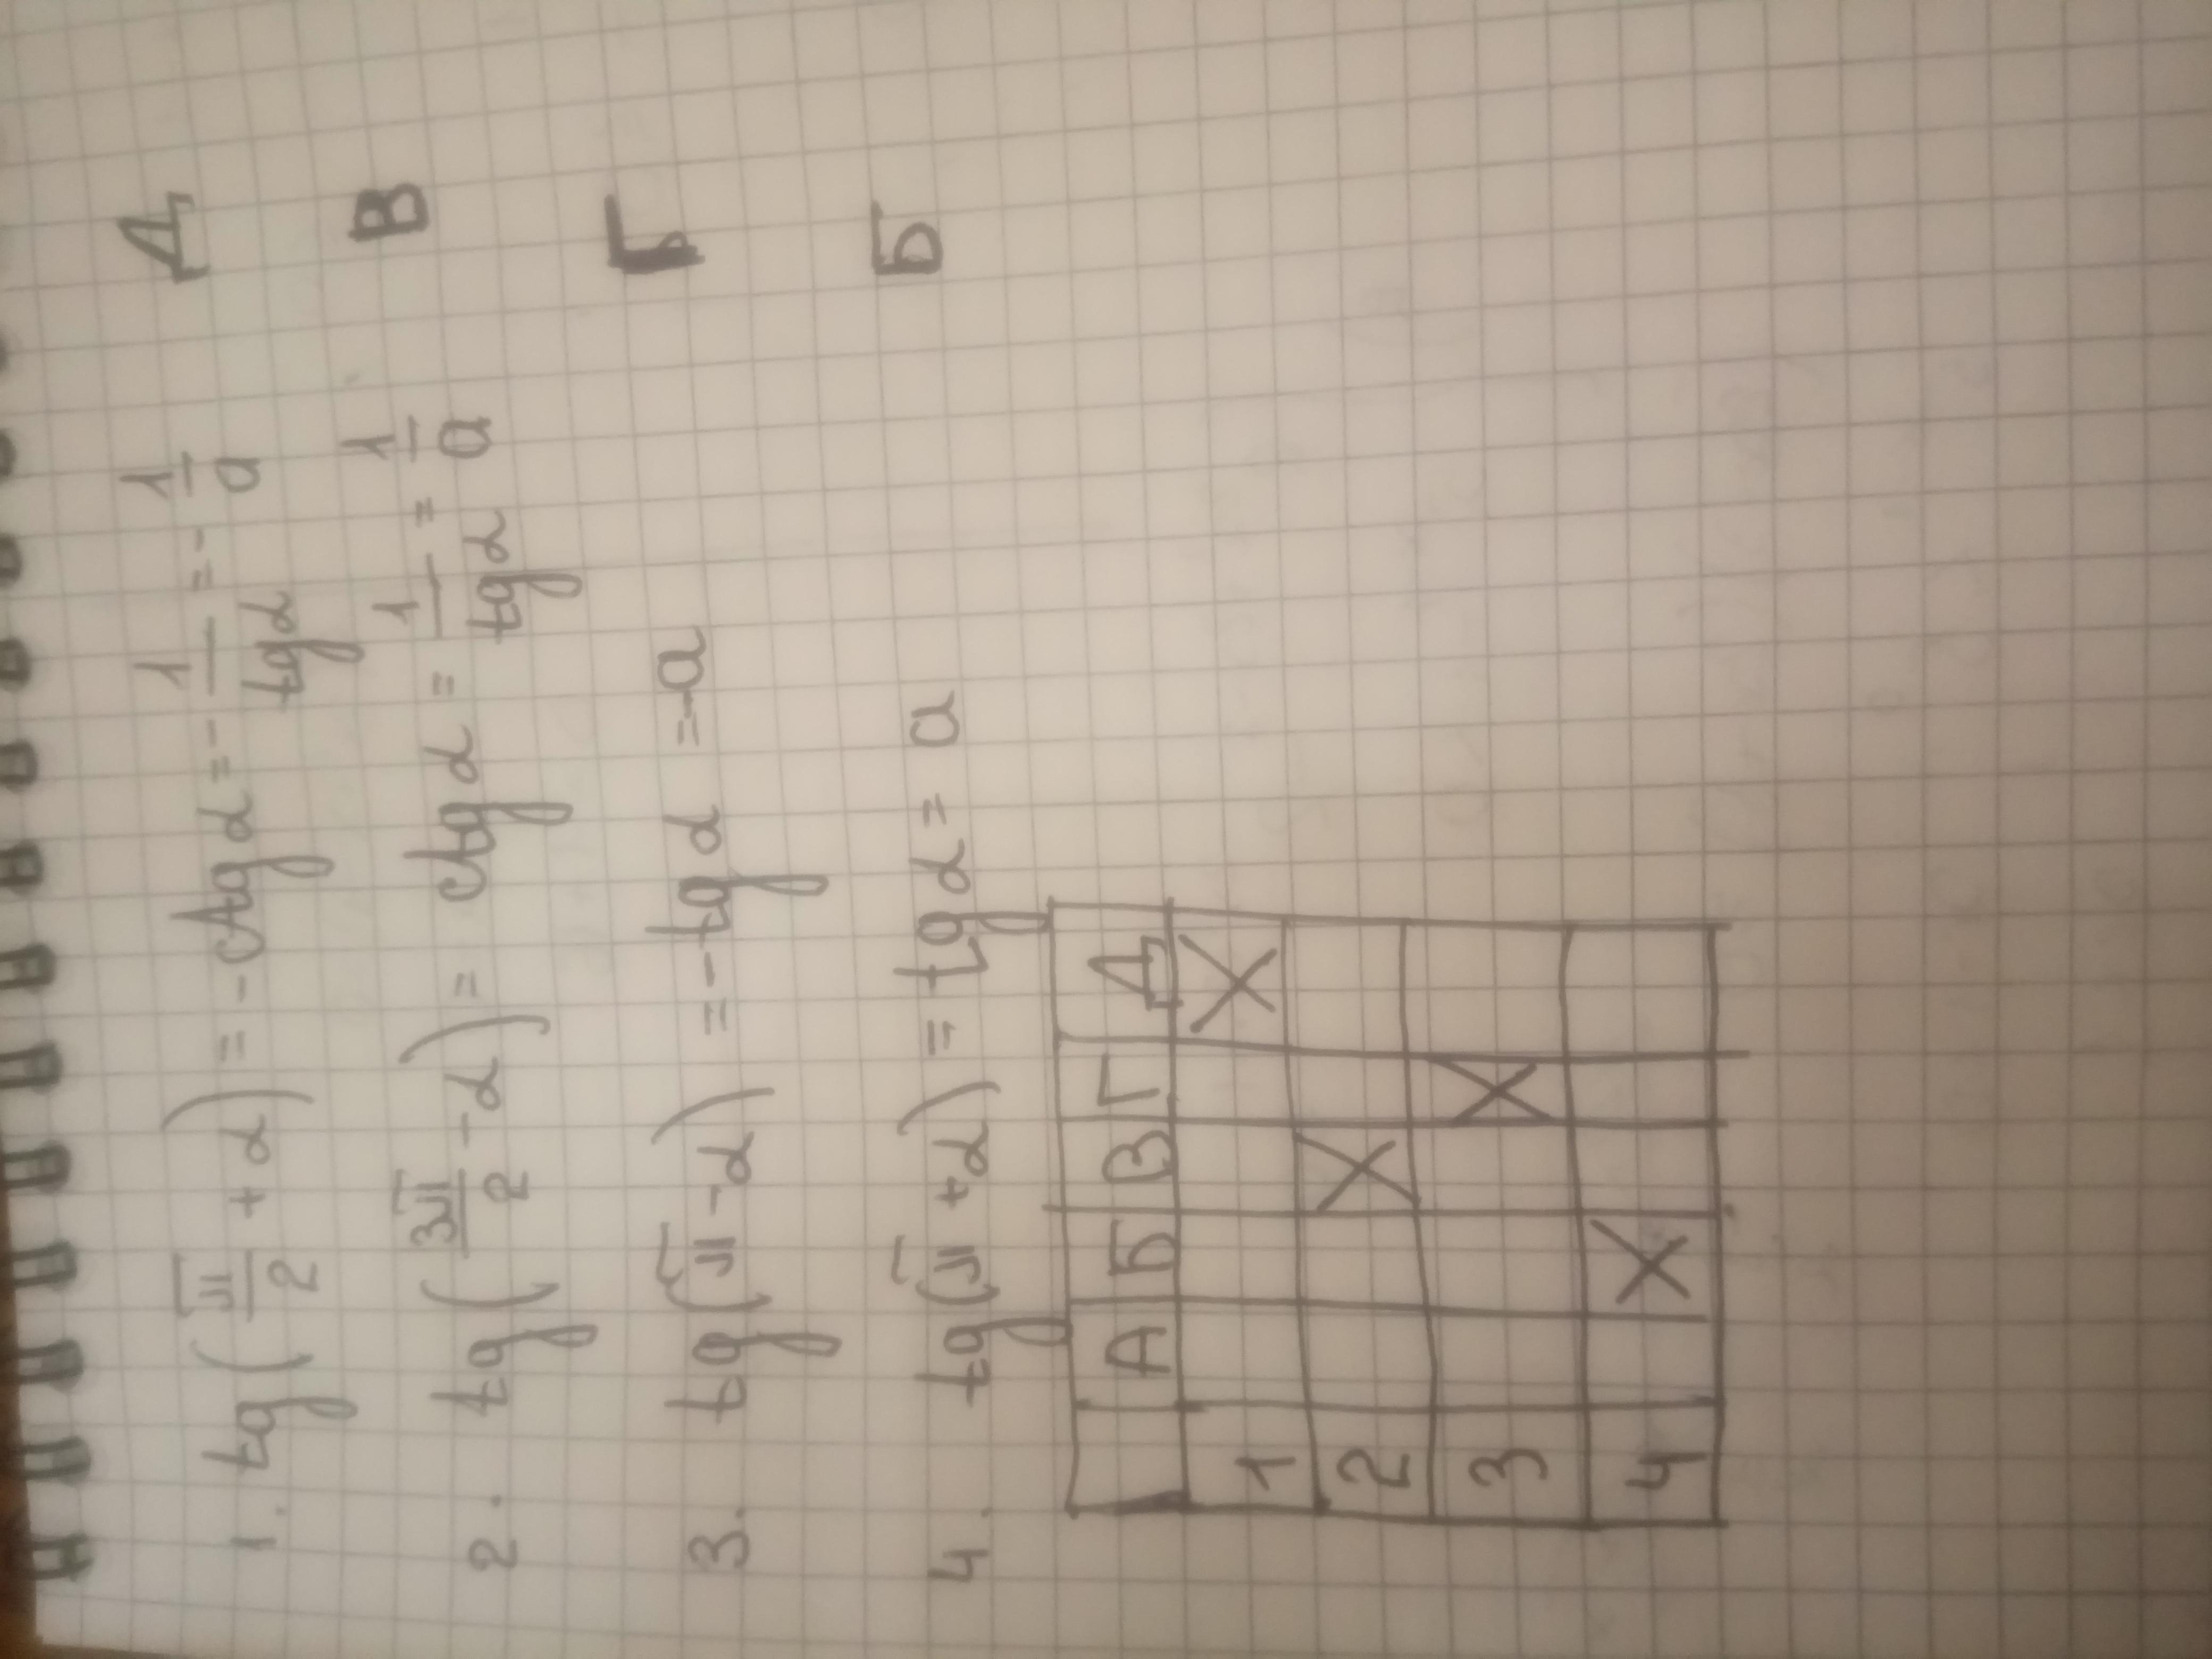 1. tg(π/2 + α) = -ctg α = - 1/tg α = - 1/a Д
2. tg(3π/2 - α) = ctg α = 1/tg α = 1/a В
3. tg(π - α) = - tg α = -a Г
4. tg(π + α) = tg α = a Б
А Б В Г Д
1 X
2 X
3 X
4 X